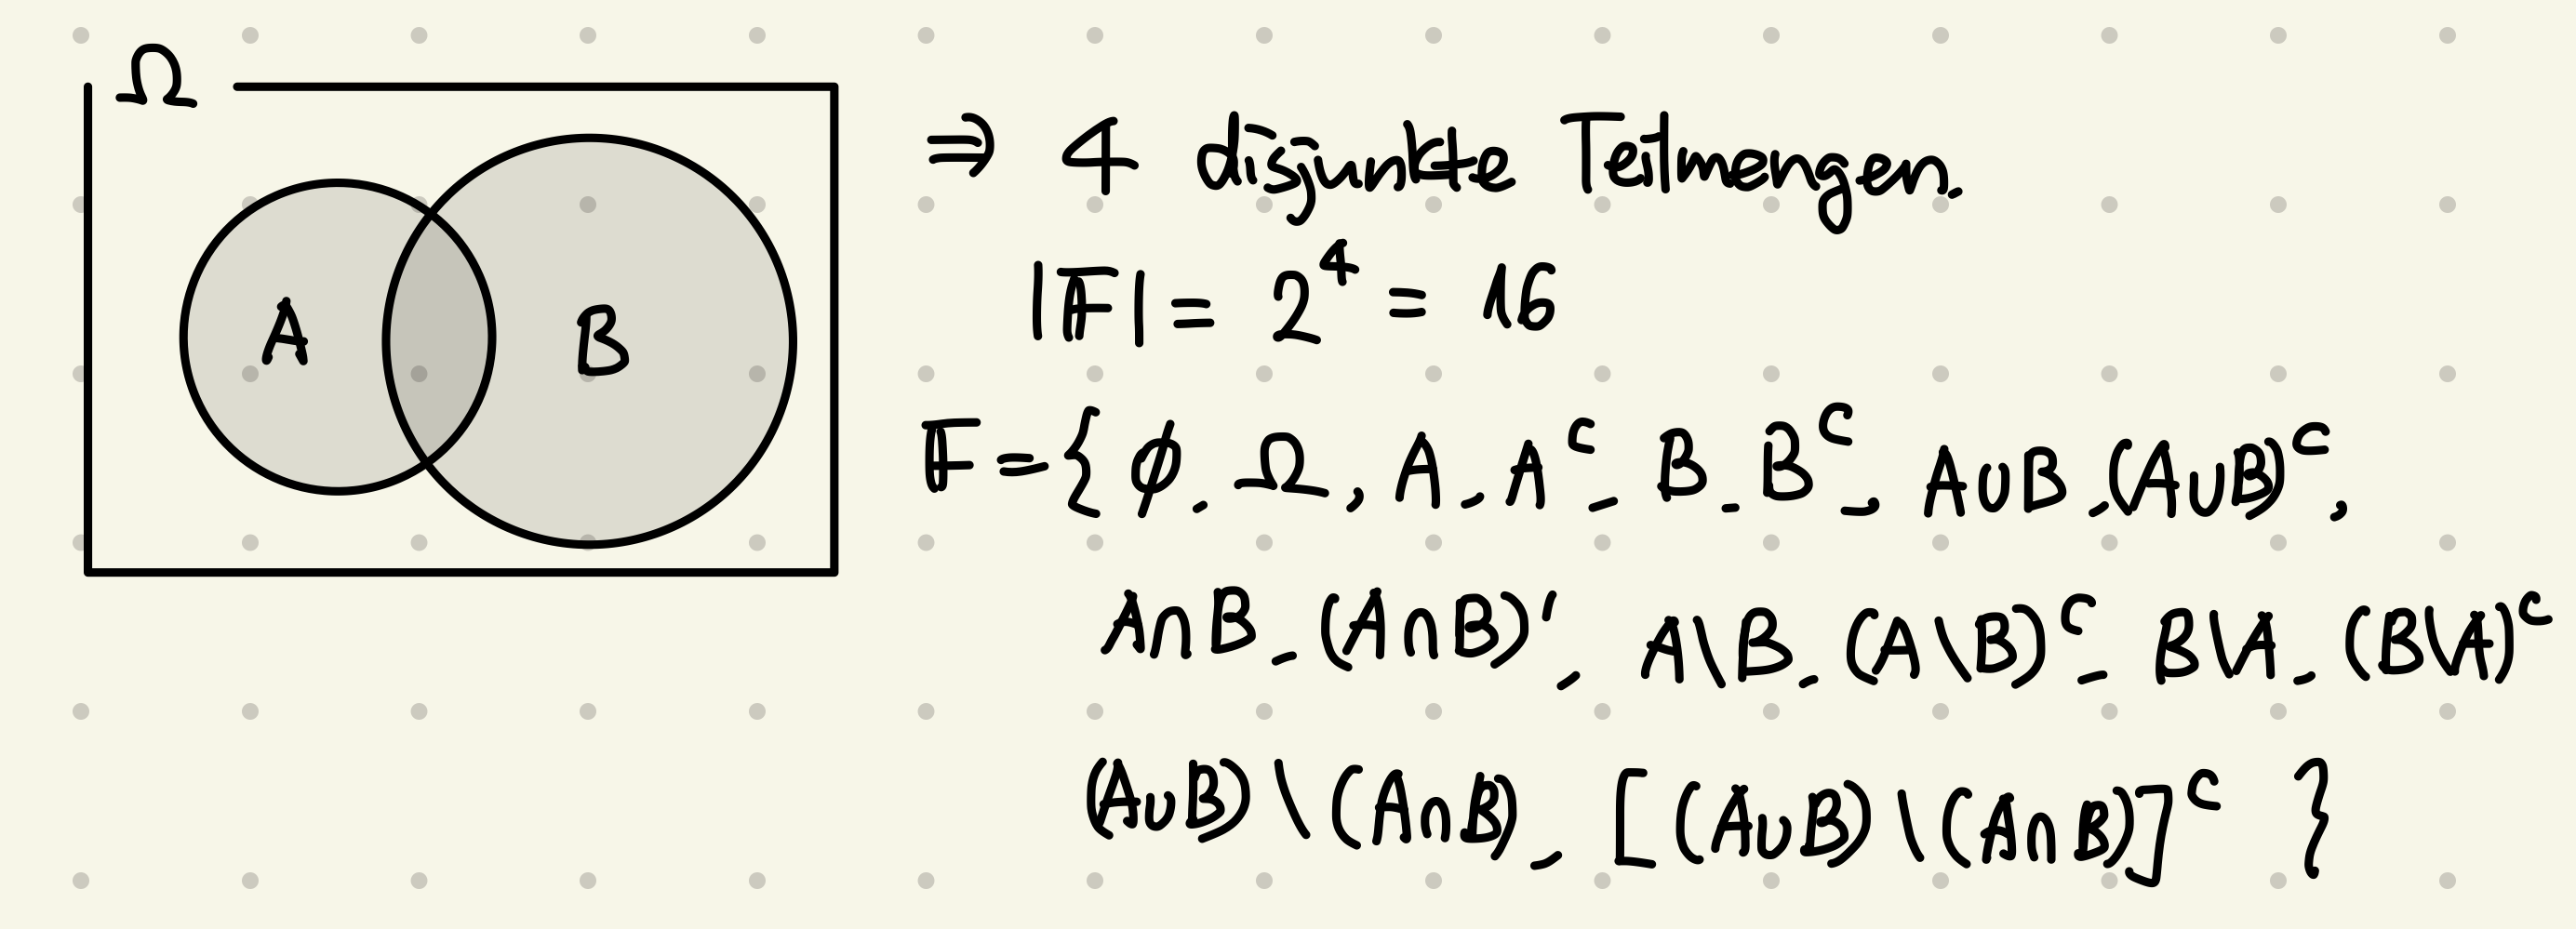 Ω
A
B
⇒ 4 disjunkte Teilmengen.
|𝔽| = 2⁴ = 16
𝔽 = { ∅, Ω, A, A^c, B, B^c, A∪B, (A∪B)^c,
A∩B, (A∩B)', A\B, (A\B)^c, B\A, (B\A)^c
(A∪B) \ (A∩B), [(A∪B) \ (A∩B)]^c }